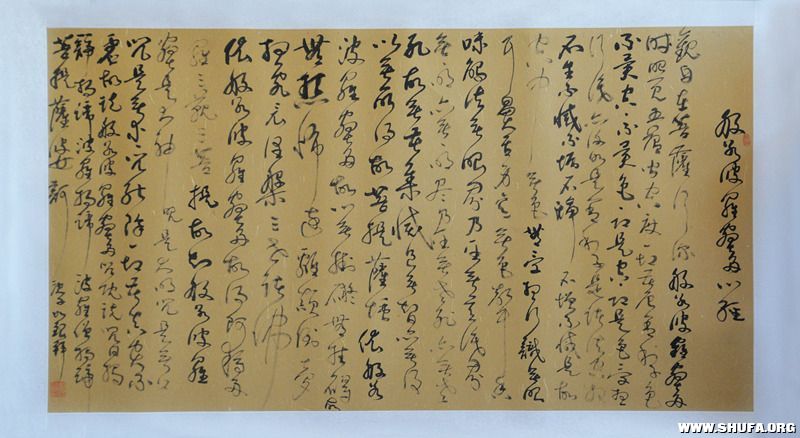 般若波羅蜜多心經
觀自在菩薩行深般若波羅蜜多
時照見五蘊皆空度一切苦厄舍利子色
不異空空不異色色即是空空即是色受想
行識亦復如是舍利子是諸法空相
不生不滅不垢不淨不增不減是故
空中無色無受想行識無眼
耳鼻舌身意無色聲香
味觸法無眼界乃至無意識界
無無明亦無無明盡乃至無老死亦無老
死盡無苦集滅道無智亦無得
以無所得故菩提薩埵依般若
波羅蜜多故心無掛礙無掛礙故
無有恐怖遠離顛倒夢
想究竟涅槃三世諸佛
依般若波羅蜜多故得阿耨多
羅三藐三菩提故知般若波羅
蜜多是大神咒是大明咒是無上
咒是無等等咒能除一切苦真實不
虛故說般若波羅蜜多咒即說咒曰揭
諦揭諦波羅揭諦波羅僧揭諦
菩提薩婆訶
WWW.SHUFA.ORG